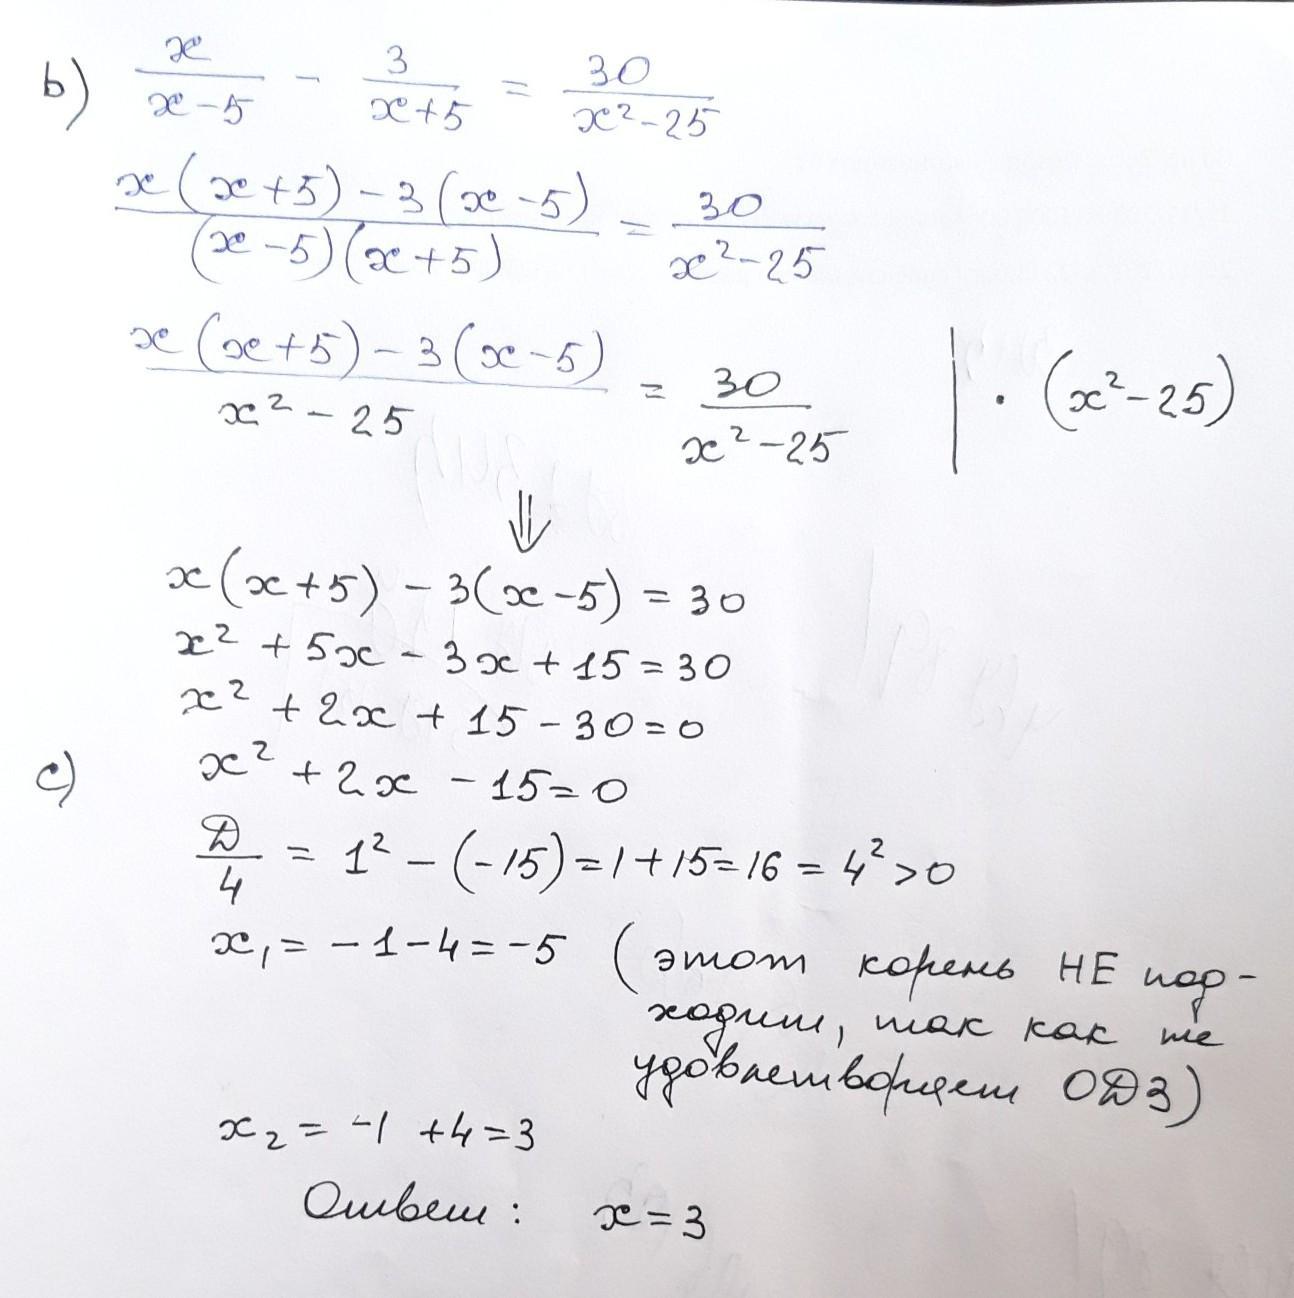 b) x/(x-5) - 3/(x+5) = 30/(x²-25)
(x(x+5)-3(x-5))/((x-5)(x+5)) = 30/(x²-25)
(x(x+5)-3(x-5))/(x²-25) = 30/(x²-25) | · (x²-25)
⇓
x(x+5) - 3(x-5) = 30
x² + 5x - 3x + 15 = 30
x² + 2x + 15 - 30 = 0
c) x² + 2x - 15 = 0
D/4 = 1² - (-15) = 1 + 15 = 16 = 4² > 0
x₁ = -1 - 4 = -5 (этот корень НЕ под-
ходит, так как не
удовлетворяет ОДЗ)
x₂ = -1 + 4 = 3
Ответ: x = 3